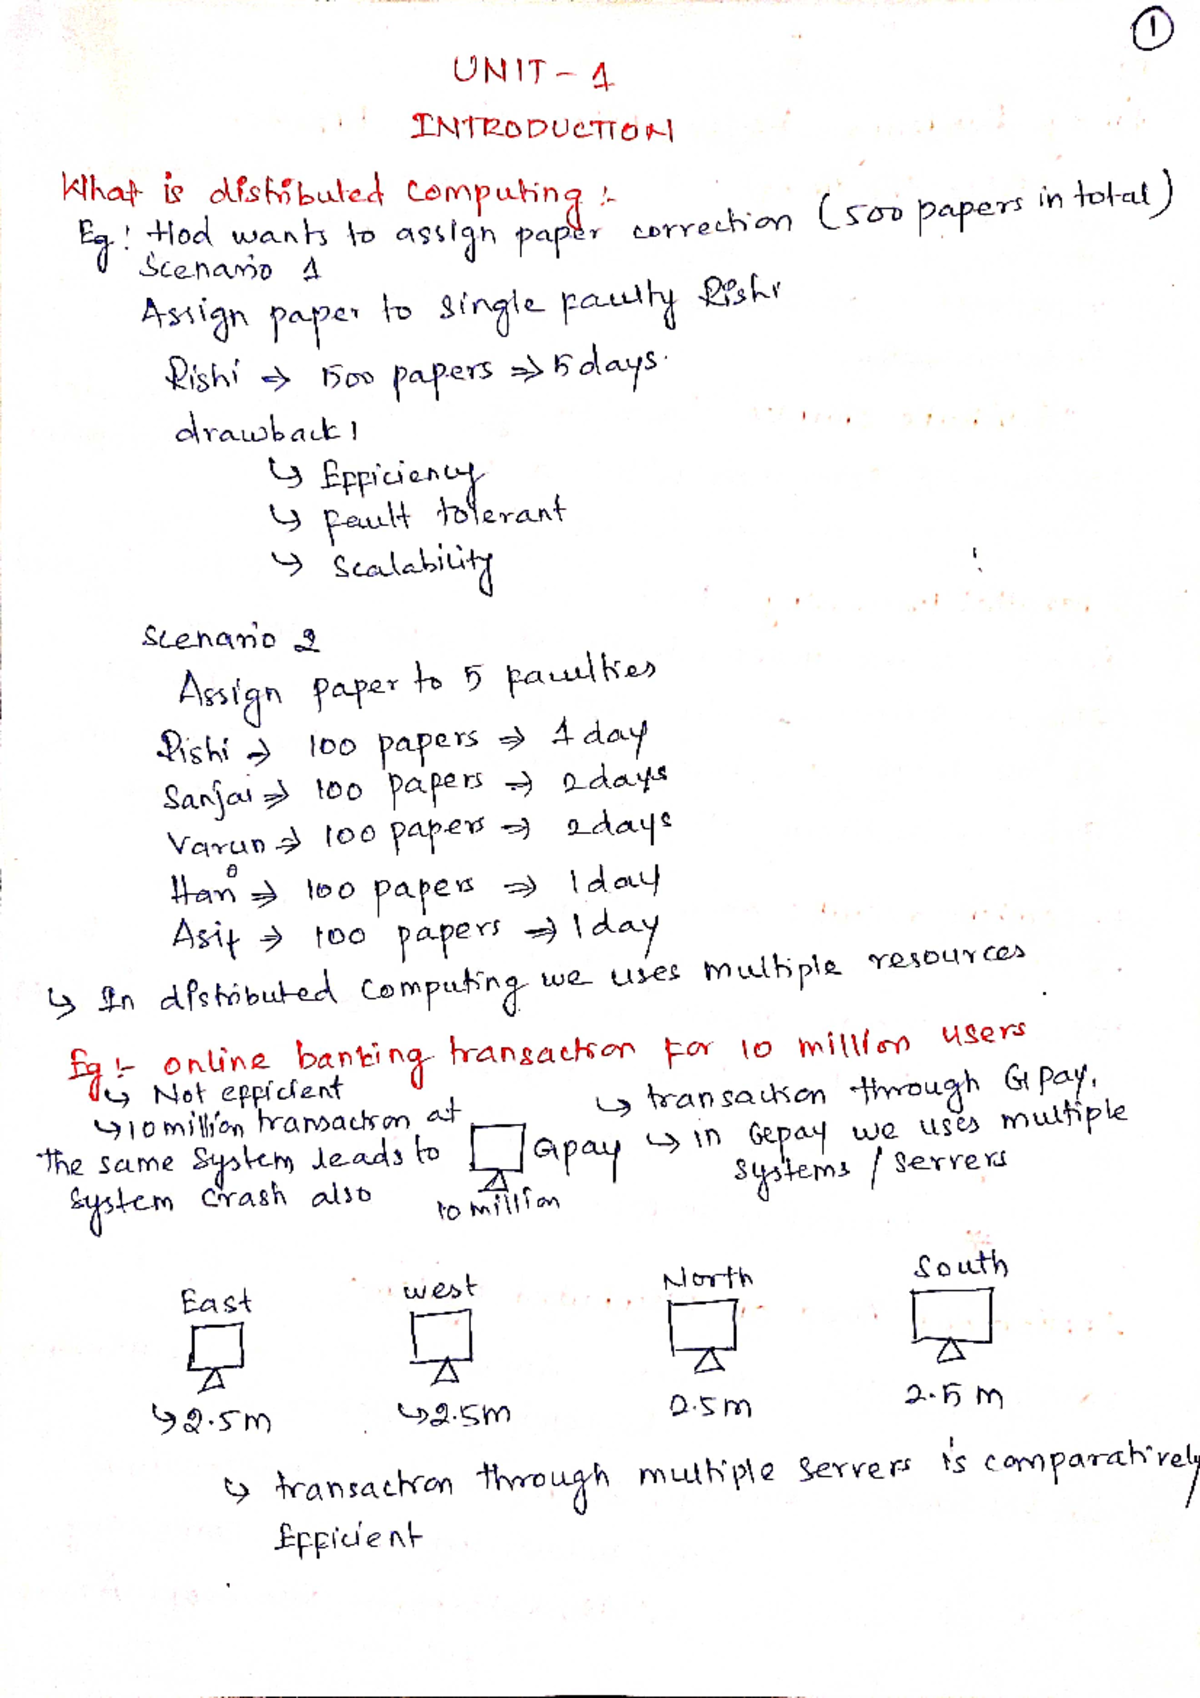 1
UNIT - 1
INTRODUCTION
What is distributed computing :-
Eg: Hod wants to assign paper correction (500 papers in total)
Scenario 1
Assign paper to single faulty Rishi
Rishi ⇒ 500 papers ⇒ 5 days.
drawback!
↳ Efficiency
↳ fault tolerant
↳ Scalability
Scenario 2
Assign paper to 5 faculties
Rishi ⇒ 100 papers ⇒ 1 day
Sanjai ⇒ 100 papers ⇒ 2 days
Varun ⇒ 100 papers ⇒ 2 days
Hari ⇒ 100 papers ⇒ 1 day
Asif ⇒ 100 papers ⇒ 1 day
↳ In distributed computing we uses multiple resources
Eg :- online banking transaction for 10 million users
↳ Not efficient
↳ 10 million transaction at
the same system leads to
system crash also
Gpay
10 million
↳ transaction through G pay.
↳ in Gepay we uses multiple
systems / servers
East
west
North
South
↳ 2.5m
↳ 2.5m
2.5m
2.5 m
↳ transaction through multiple servers is comparatively
Efficient